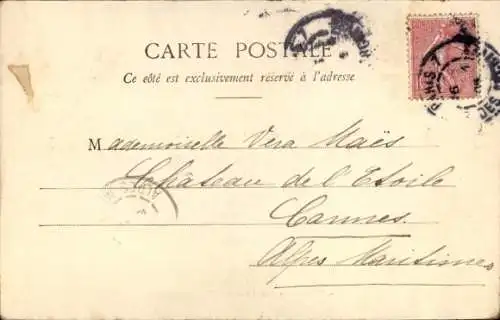 CARTE POSTALE
Ce côté est exclusivement réservé à l'adresse
Mademoiselle Vera Maës
Château de l'Etoile
Cannes
Alpes Maritimes